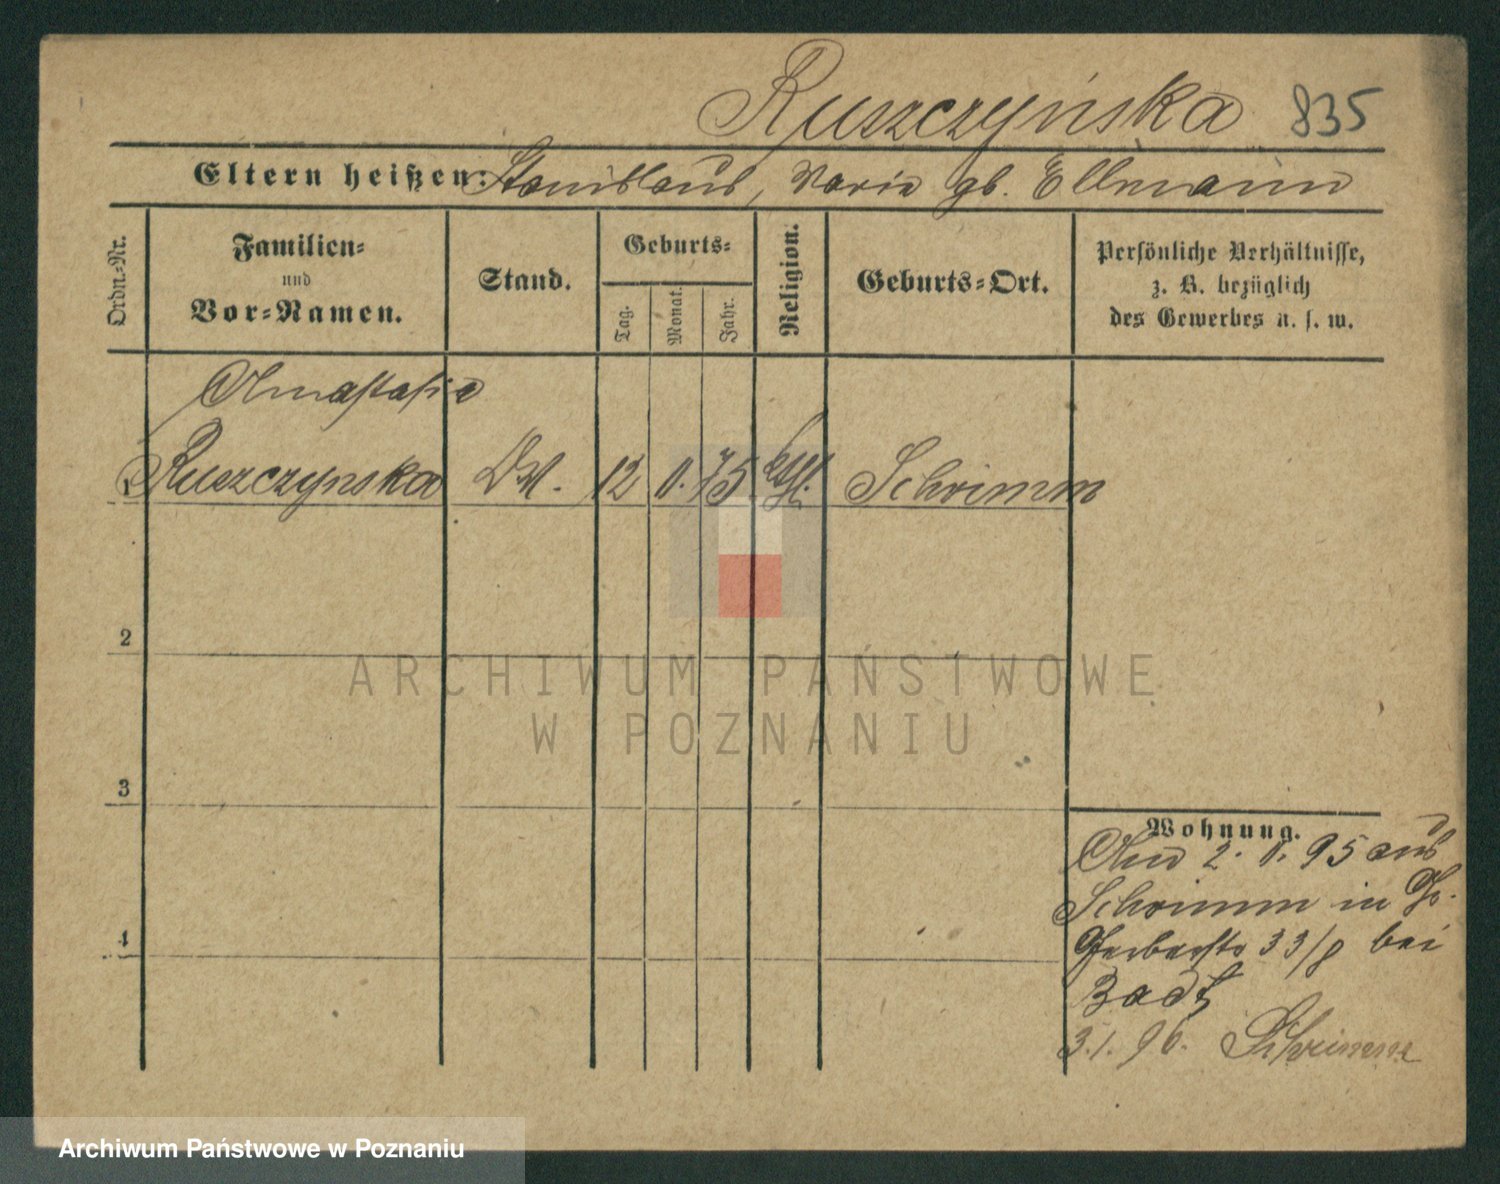 Ruszczyńska 835
Eltern heißen: Stanislaus, Maria gb. Ellmann
Ordn.-Nr.
Familien-
und
Vor-Namen.
Stand.
Geburts-
Tag.
Monat.
Jahr.
Religion.
Geburts-Ort.
Persönliche Verhältnisse,
z. B. bezüglich
des Gewerbes u. s. w.
Anastasia
1 Ruszczynska DM. 12 11. 75 kath. Schrimm
2
3
4
Wohnung.
2. 95 aus
Schrimm in Gr.
Gerberstr 33/8 bei
3.1.96. Schrimm
ARCHIWUM PAŃSTWOWE
W POZNANIU
Archiwum Państwowe w Poznaniu